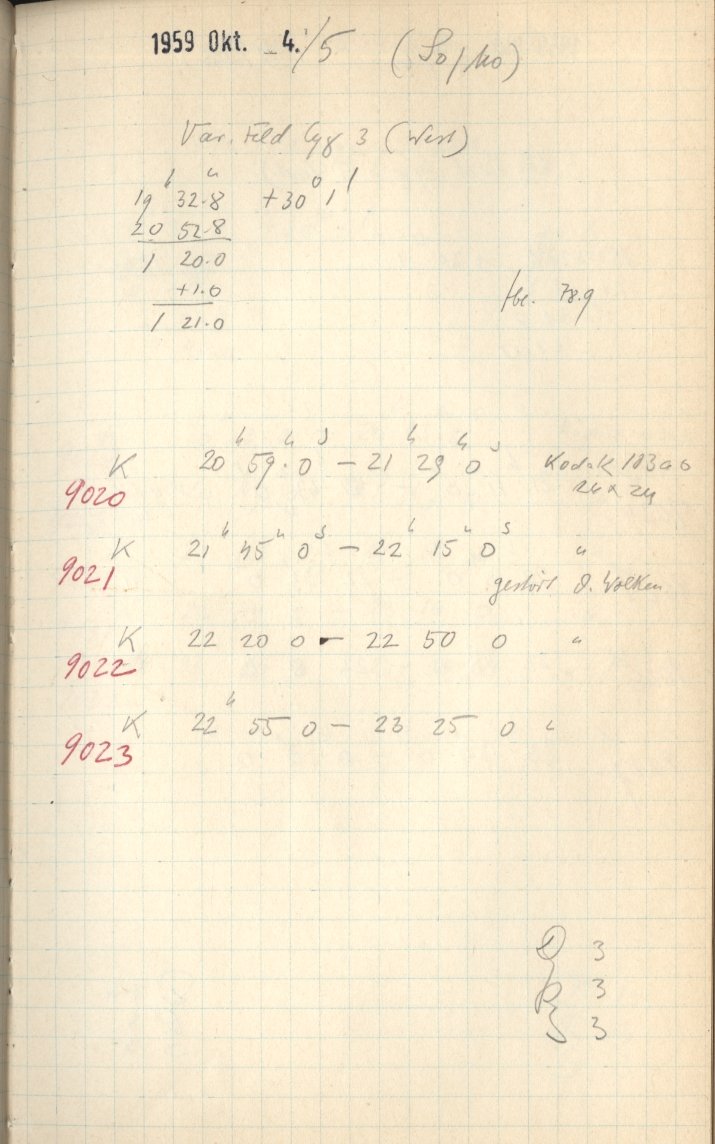 1959 Okt. 4./5 (So/Mo)
Var. Feld Cyg 3 (West)
19ʰ 32.8ᵐ +30° 1'
20 52.8
1 20.0
+1.0
1 21.0
78.9
K 20ʰ 59ᵐ.0ˢ – 21ʰ 29ᵐ 0ˢ Kodak 103aO
9020 24 x 24
K 21ʰ 45ᵐ 0ˢ – 22ʰ 15ᵐ 0ˢ "
9021 gestört d. Wolken
K 22 20 0 – 22 50 0 "
9022
K 22ʰ 55 0 – 23 25 0 "
9023
3
3
3